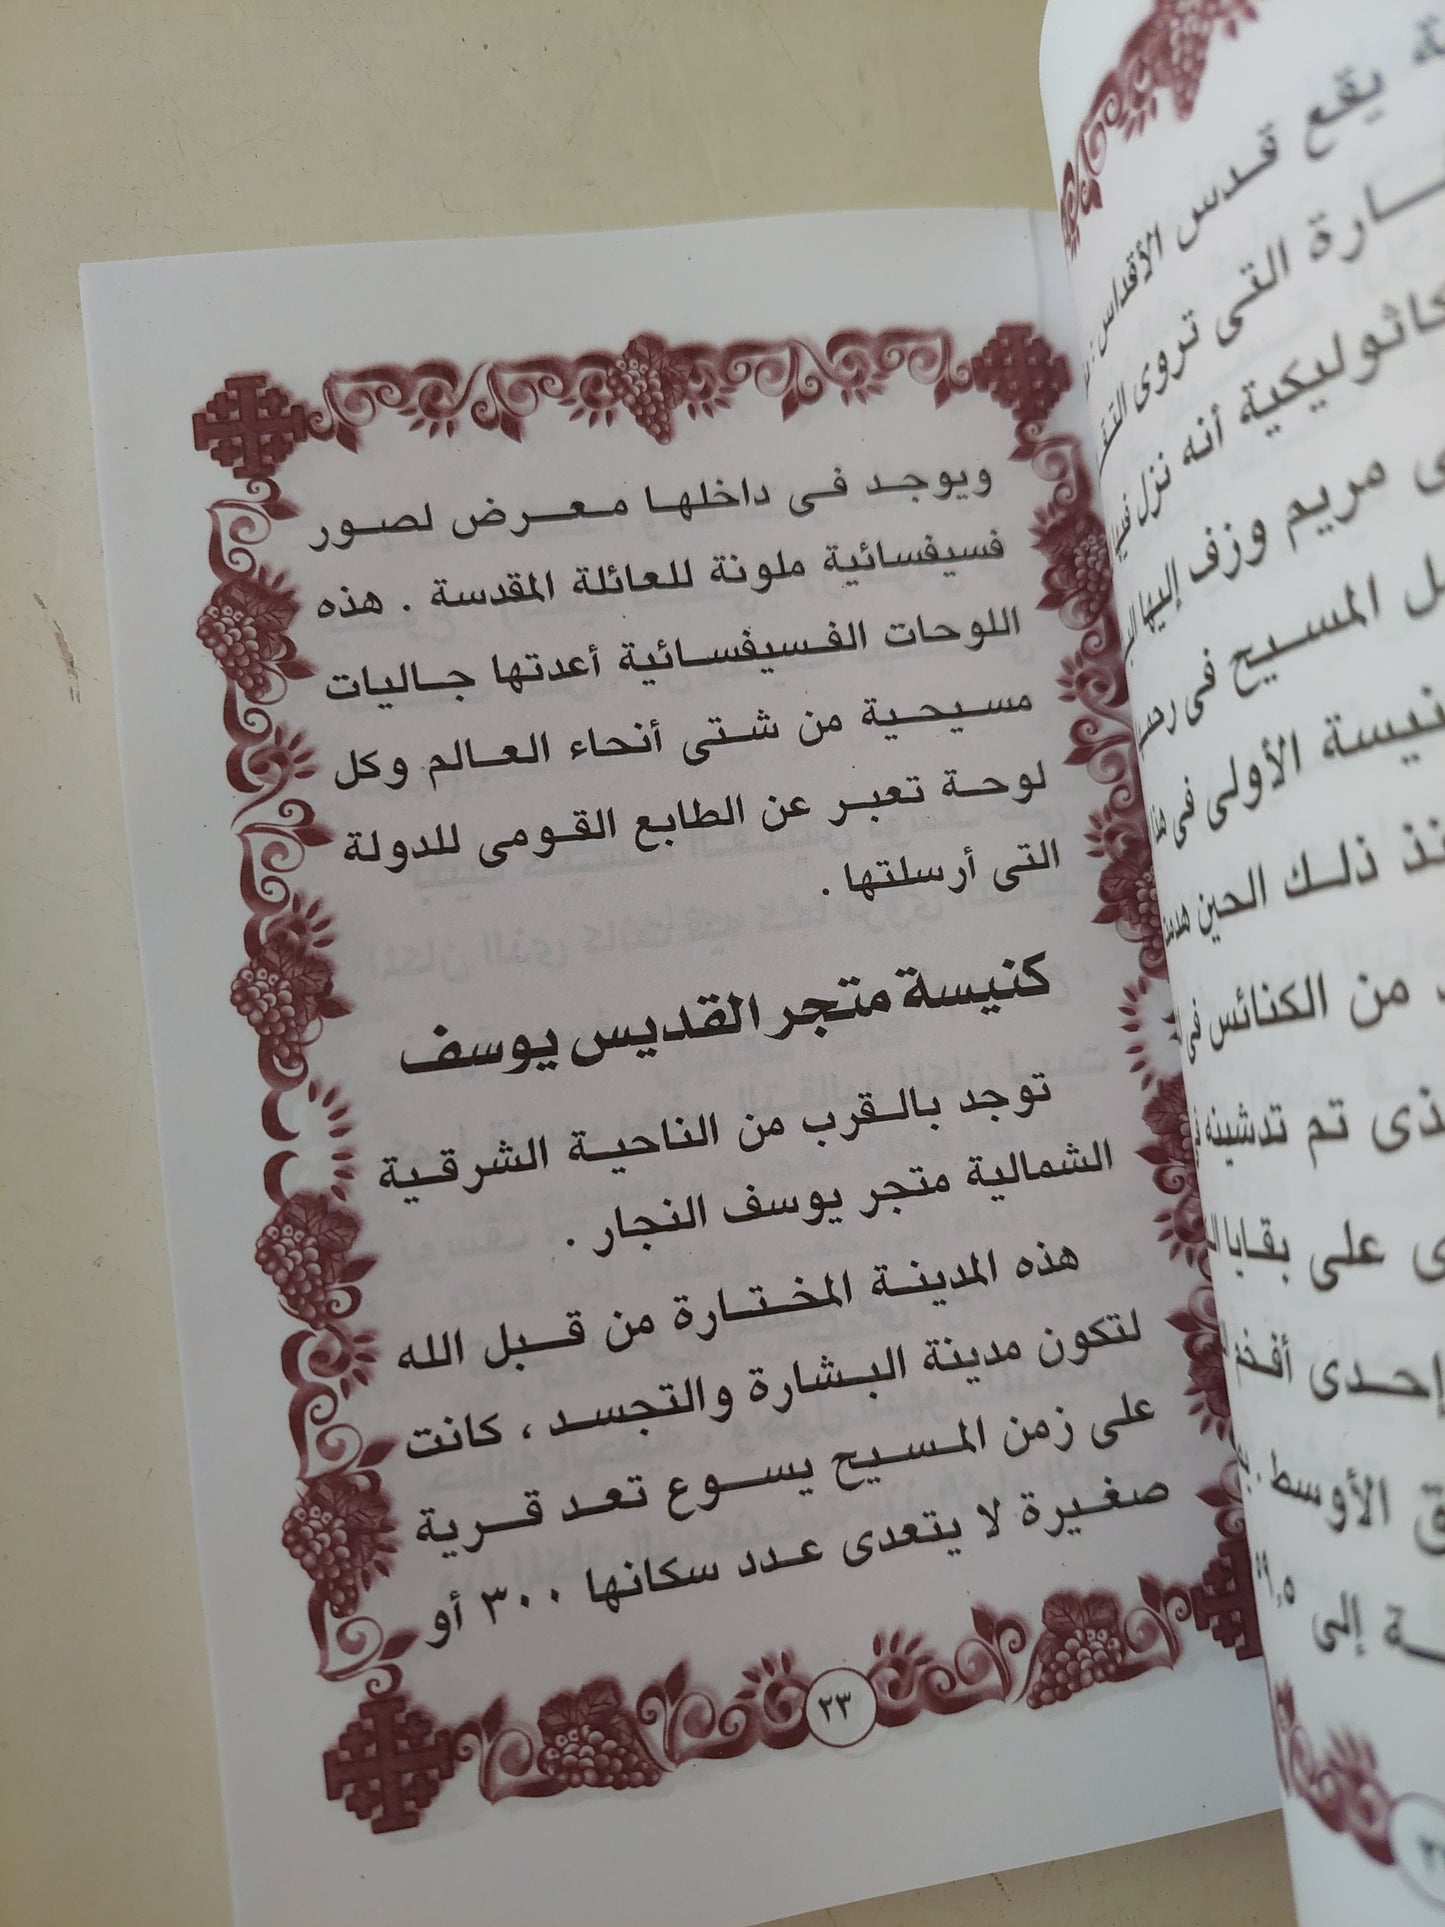 ويوجد فى داخلها معرض لصور
فسيفسائية ملونة للعائلة المقدسة . هذه
اللوحات الفسيفسائية أعدتها جاليات
مسيحية من شتى أنحاء العالم وكل
لوحة تعبر عن الطابع القومى للدولة
التى أرسلتها .
كنيسة متجر القديس يوسف
توجد بالقرب من الناحية الشرقية
الشمالية متجر يوسف النجار .
هذه المدينة المختارة من قبل الله
لتكون مدينة البشارة والتجسد ، كانت
على زمن المسيح يسوع تعد قرية
صغيرة لا يتعدى عدد سكانها ٣٠٠ أو
٢٣
يقع قدس الأقداس
التى تروى
أنه نزل فيها
مريم وزف إليها
المسيح فى
الأولى فى
ذلك الحين
من الكنائس فى
تم تدشينه
على بقايا
إحدى أفخم
الأوسط .
إلى